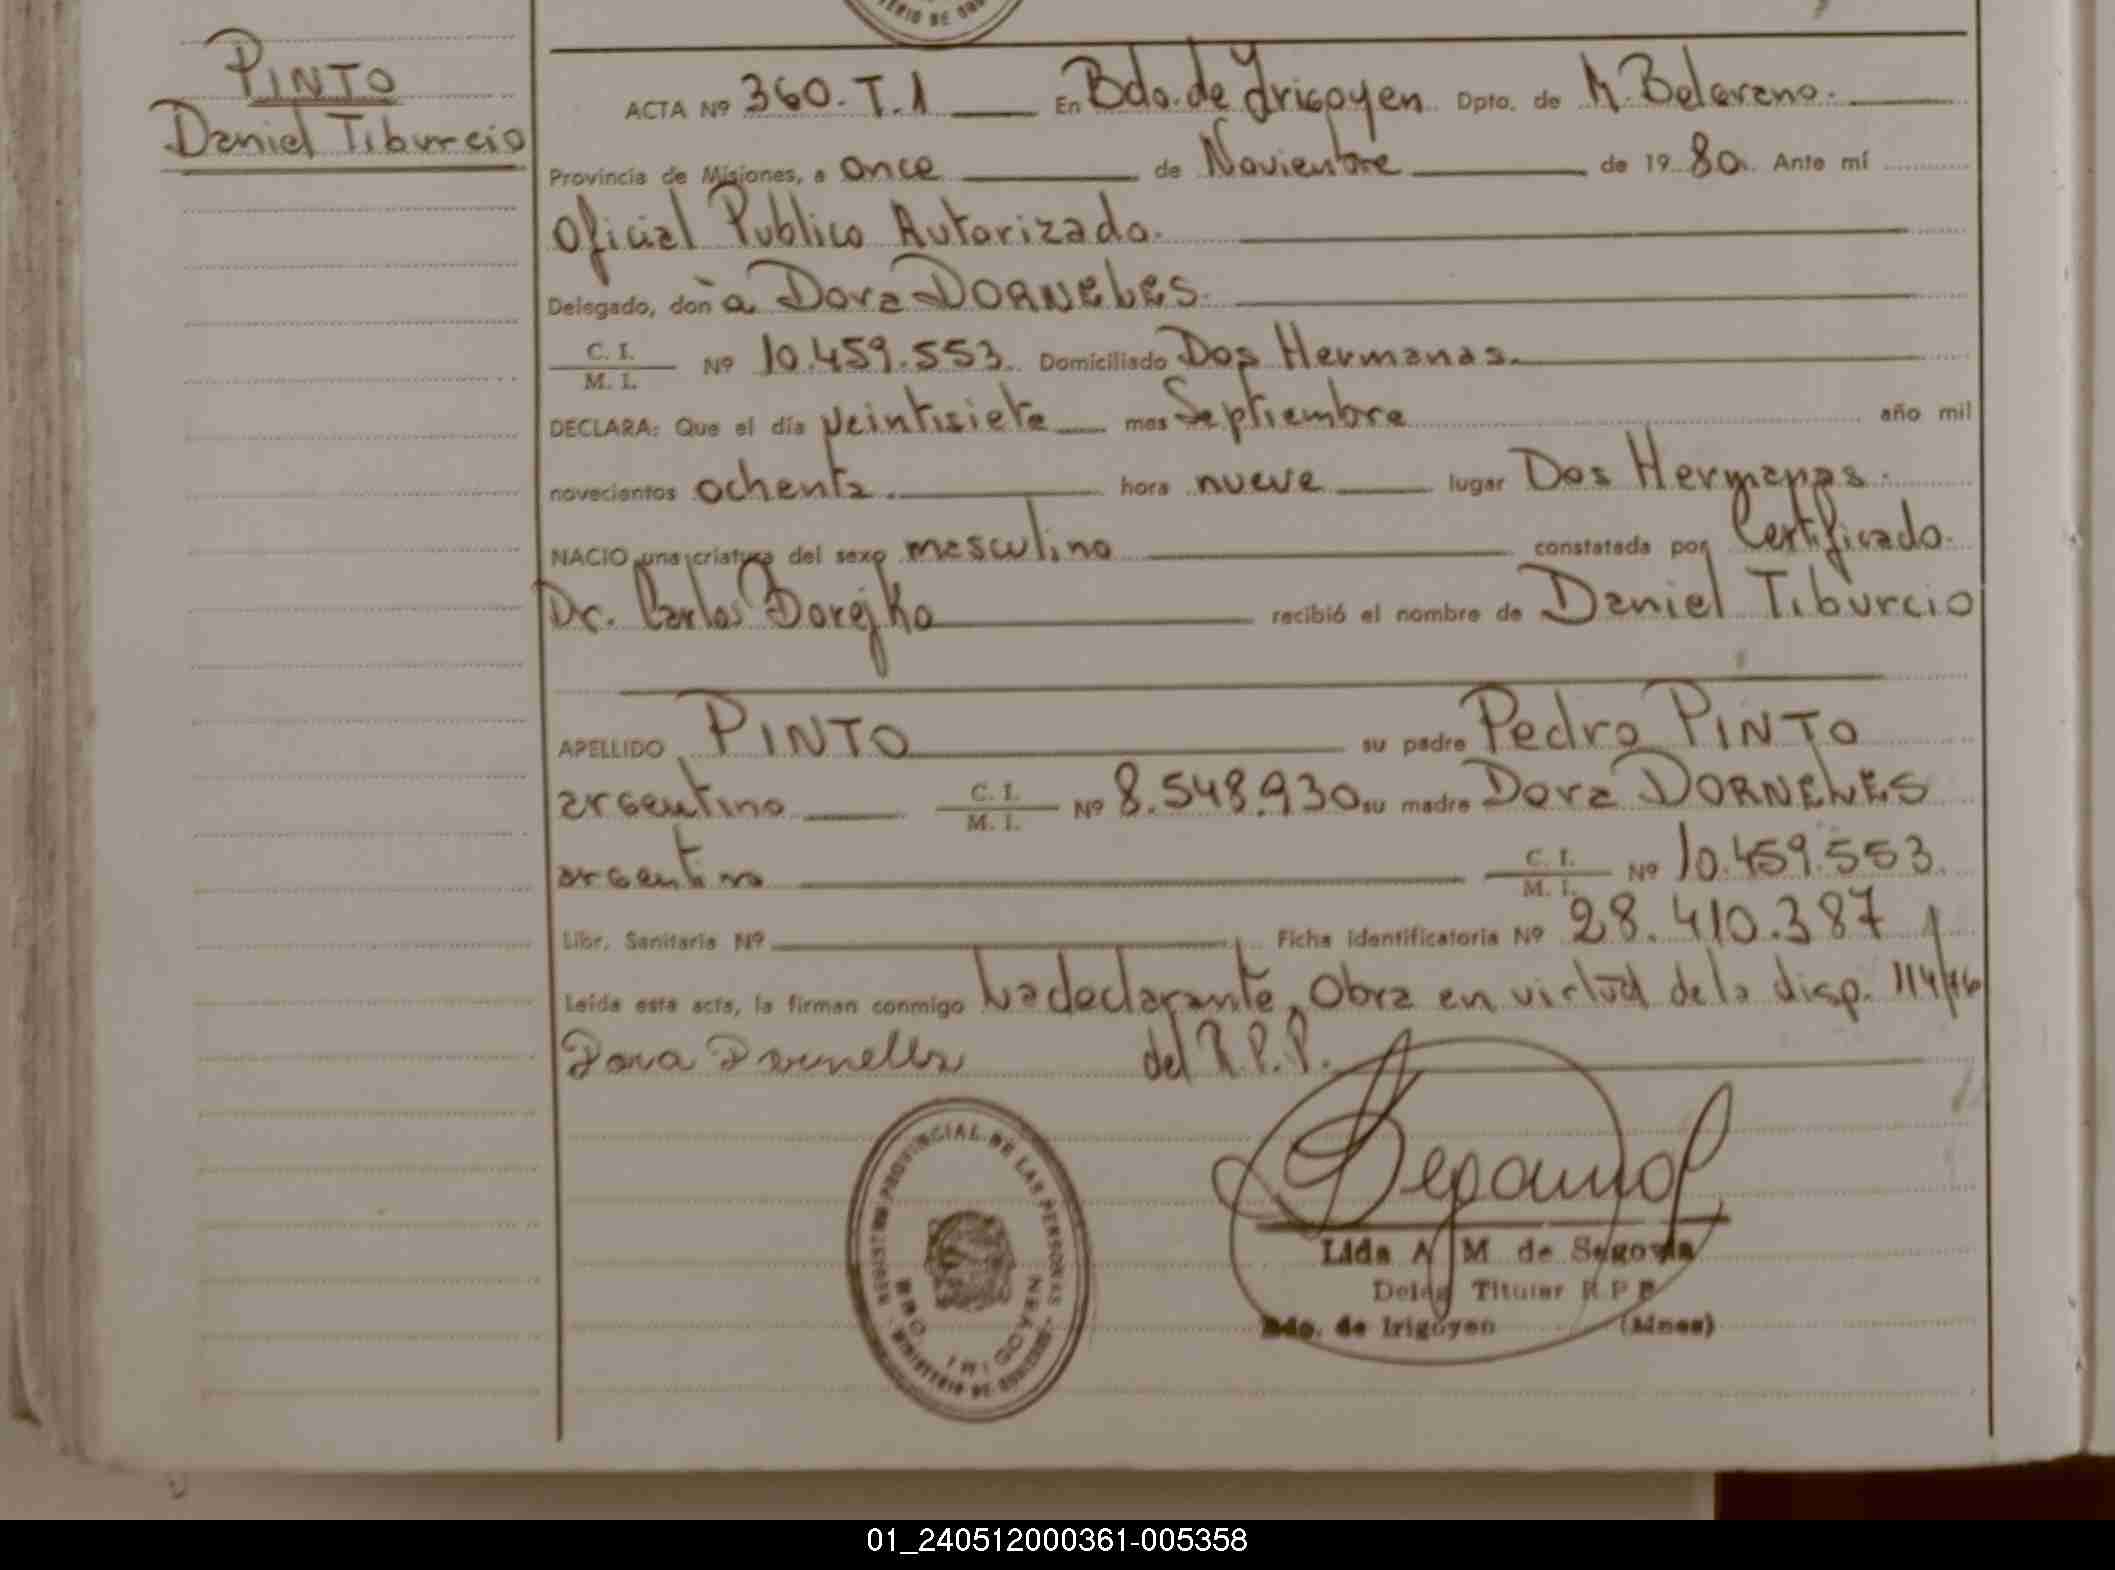 PINTO
Daniel Tiburcio
ACTA Nº 360. T. 1 En Bdo. de Yrigoyen Dpto. de M. Belgrano.
Provincia de Misiones, a once de Noviembre de 1980. Ante mí
Oficial Publico Autorizado.
Delegado, doña Dora DORNELES.
C. I.
M. I. Nº 10.459.553. Domiciliado Dos Hermanas.
DECLARA: Que el día veintisiete mes Septiembre año mil
novecientos ochenta. hora nueve lugar Dos Hermanas.
NACIO una criatura del sexo masculino constatada por Certificado.
Dr. Carlos Borejko recibió el nombre de Daniel Tiburcio
APELLIDO PINTO su padre Pedro PINTO
argentino C. I. M. I. Nº 8.548.930 su madre Dora DORNELES
argentina C. I. M. I. Nº 10.459.553.
Libr. Sanitaria Nº Ficha identificatoria Nº 28.410.387
Leída esta acta, la firman conmigo La declarante, Obra en virtud de la disp. 114/76
Dora Dornelles del R.P.P.
REGISTRO PROVINCIAL DE LAS PERSONAS
BDO. IRIGOYEN
MINISTERIO DE GOBIERNO
Lida A M de Segovia
Deleg Titular R P P
Bdo. de Irigoyen (Mnes)
01_240512000361-005358